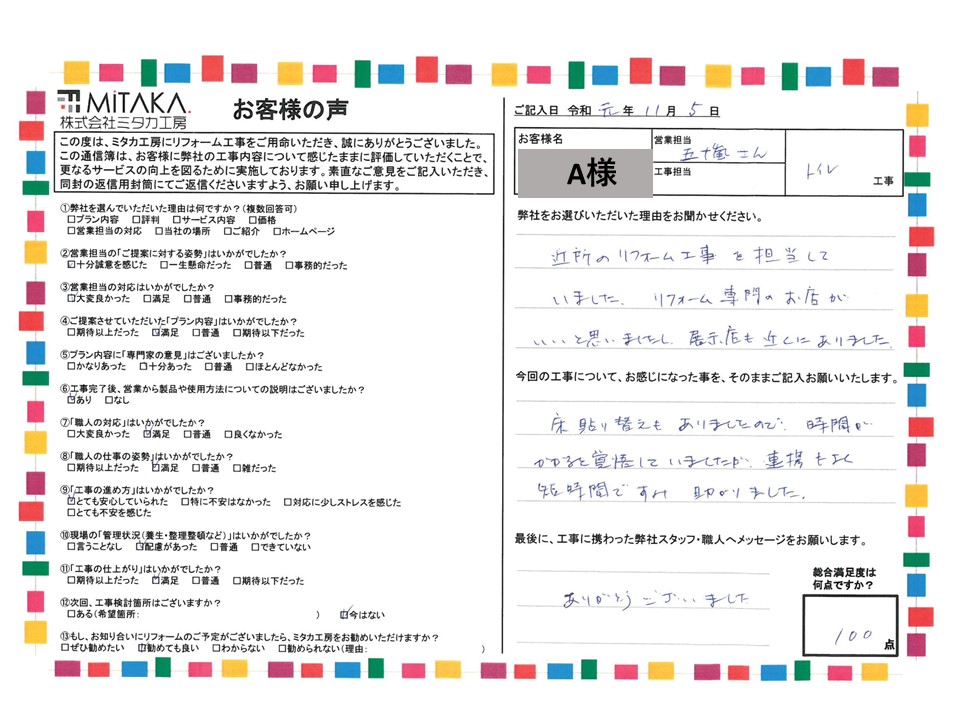 MiTAKA.
株式会社ミタカ工房
お客様の声
この度は、ミタカ工房にリフォーム工事をご用命いただき、誠にありがとうございました。
この通信簿は、お客様に弊社の工事内容について感じたままに評価していただくことで、
更なるサービスの向上を図るために実施しております。素直なご意見をご記入いただき、
同封の返信用封筒にてご返信くださいますよう、お願い申し上げます。
①弊社を選んでいただいた理由は何ですか？(複数回答可)
□プラン内容 □評判 □サービス内容 □価格
□営業担当の対応 □当社の場所 □ご紹介 □ホームページ
②営業担当の「ご提案に対する姿勢」はいかがでしたか？
☑十分誠意を感じた □一生懸命だった □普通 □事務的だった
③営業担当の対応はいかがでしたか？
☑大変良かった □満足 □普通 □事務的だった
④ご提案させていただいた「プラン内容」はいかがでしたか？
□期待以上だった ☑満足 □普通 □期待以下だった
⑤プラン内容に「専門家の意見」はございましたか？
□かなりあった □十分あった □普通 □ほとんどなかった
⑥工事完了後、営業から製品や使用方法についての説明はございましたか？
☑あり □なし
⑦「職人の対応」はいかがでしたか？
□大変良かった ☑満足 □普通 □良くなかった
⑧「職人の仕事の姿勢」はいかがでしたか？
□期待以上だった ☑満足 □普通 □雑だった
⑨「工事の進め方」はいかがでしたか？
☑とても安心していられた □特に不安はなかった □対応に少しストレスを感じた
□とても不安を感じた
⑩現場の「管理状況(養生・整理整頓など)」はいかがでしたか？
□言うことなし ☑配慮があった □普通 □できていない
⑪「工事の仕上がり」はいかがでしたか？
□期待以上だった ☑満足 □普通 □期待以下だった
⑫次回、工事検討箇所はございますか？
□ある(希望箇所: ) ☑今はない
⑬もし、お知り合いにリフォームのご予定がございましたら、ミタカ工房をお勧めいただけますか？
□ぜひ勧めたい ☑勧めても良い □わからない □勧められない(理由: )
ご記入日 令和 元 年 11 月 5 日
お客様名
A様
営業担当
五十嵐さん
工事担当
トイレ
工事
弊社をお選びいただいた理由をお聞かせください。
近所のリフォーム工事を担当して
いました。リフォーム専門のお店が
いいと思いましたし、展示店も近くにありました。
今回の工事について、お感じになった事を、そのままご記入お願いいたします。
床貼り替えもありましたので、時間が
かかると覚悟していましたが、連携もよく
短時間ですみ 助かりました。
最後に、工事に携わった弊社スタッフ・職人へメッセージをお願いします。
ありがとうございました
総合満足度は
何点ですか？
100
点